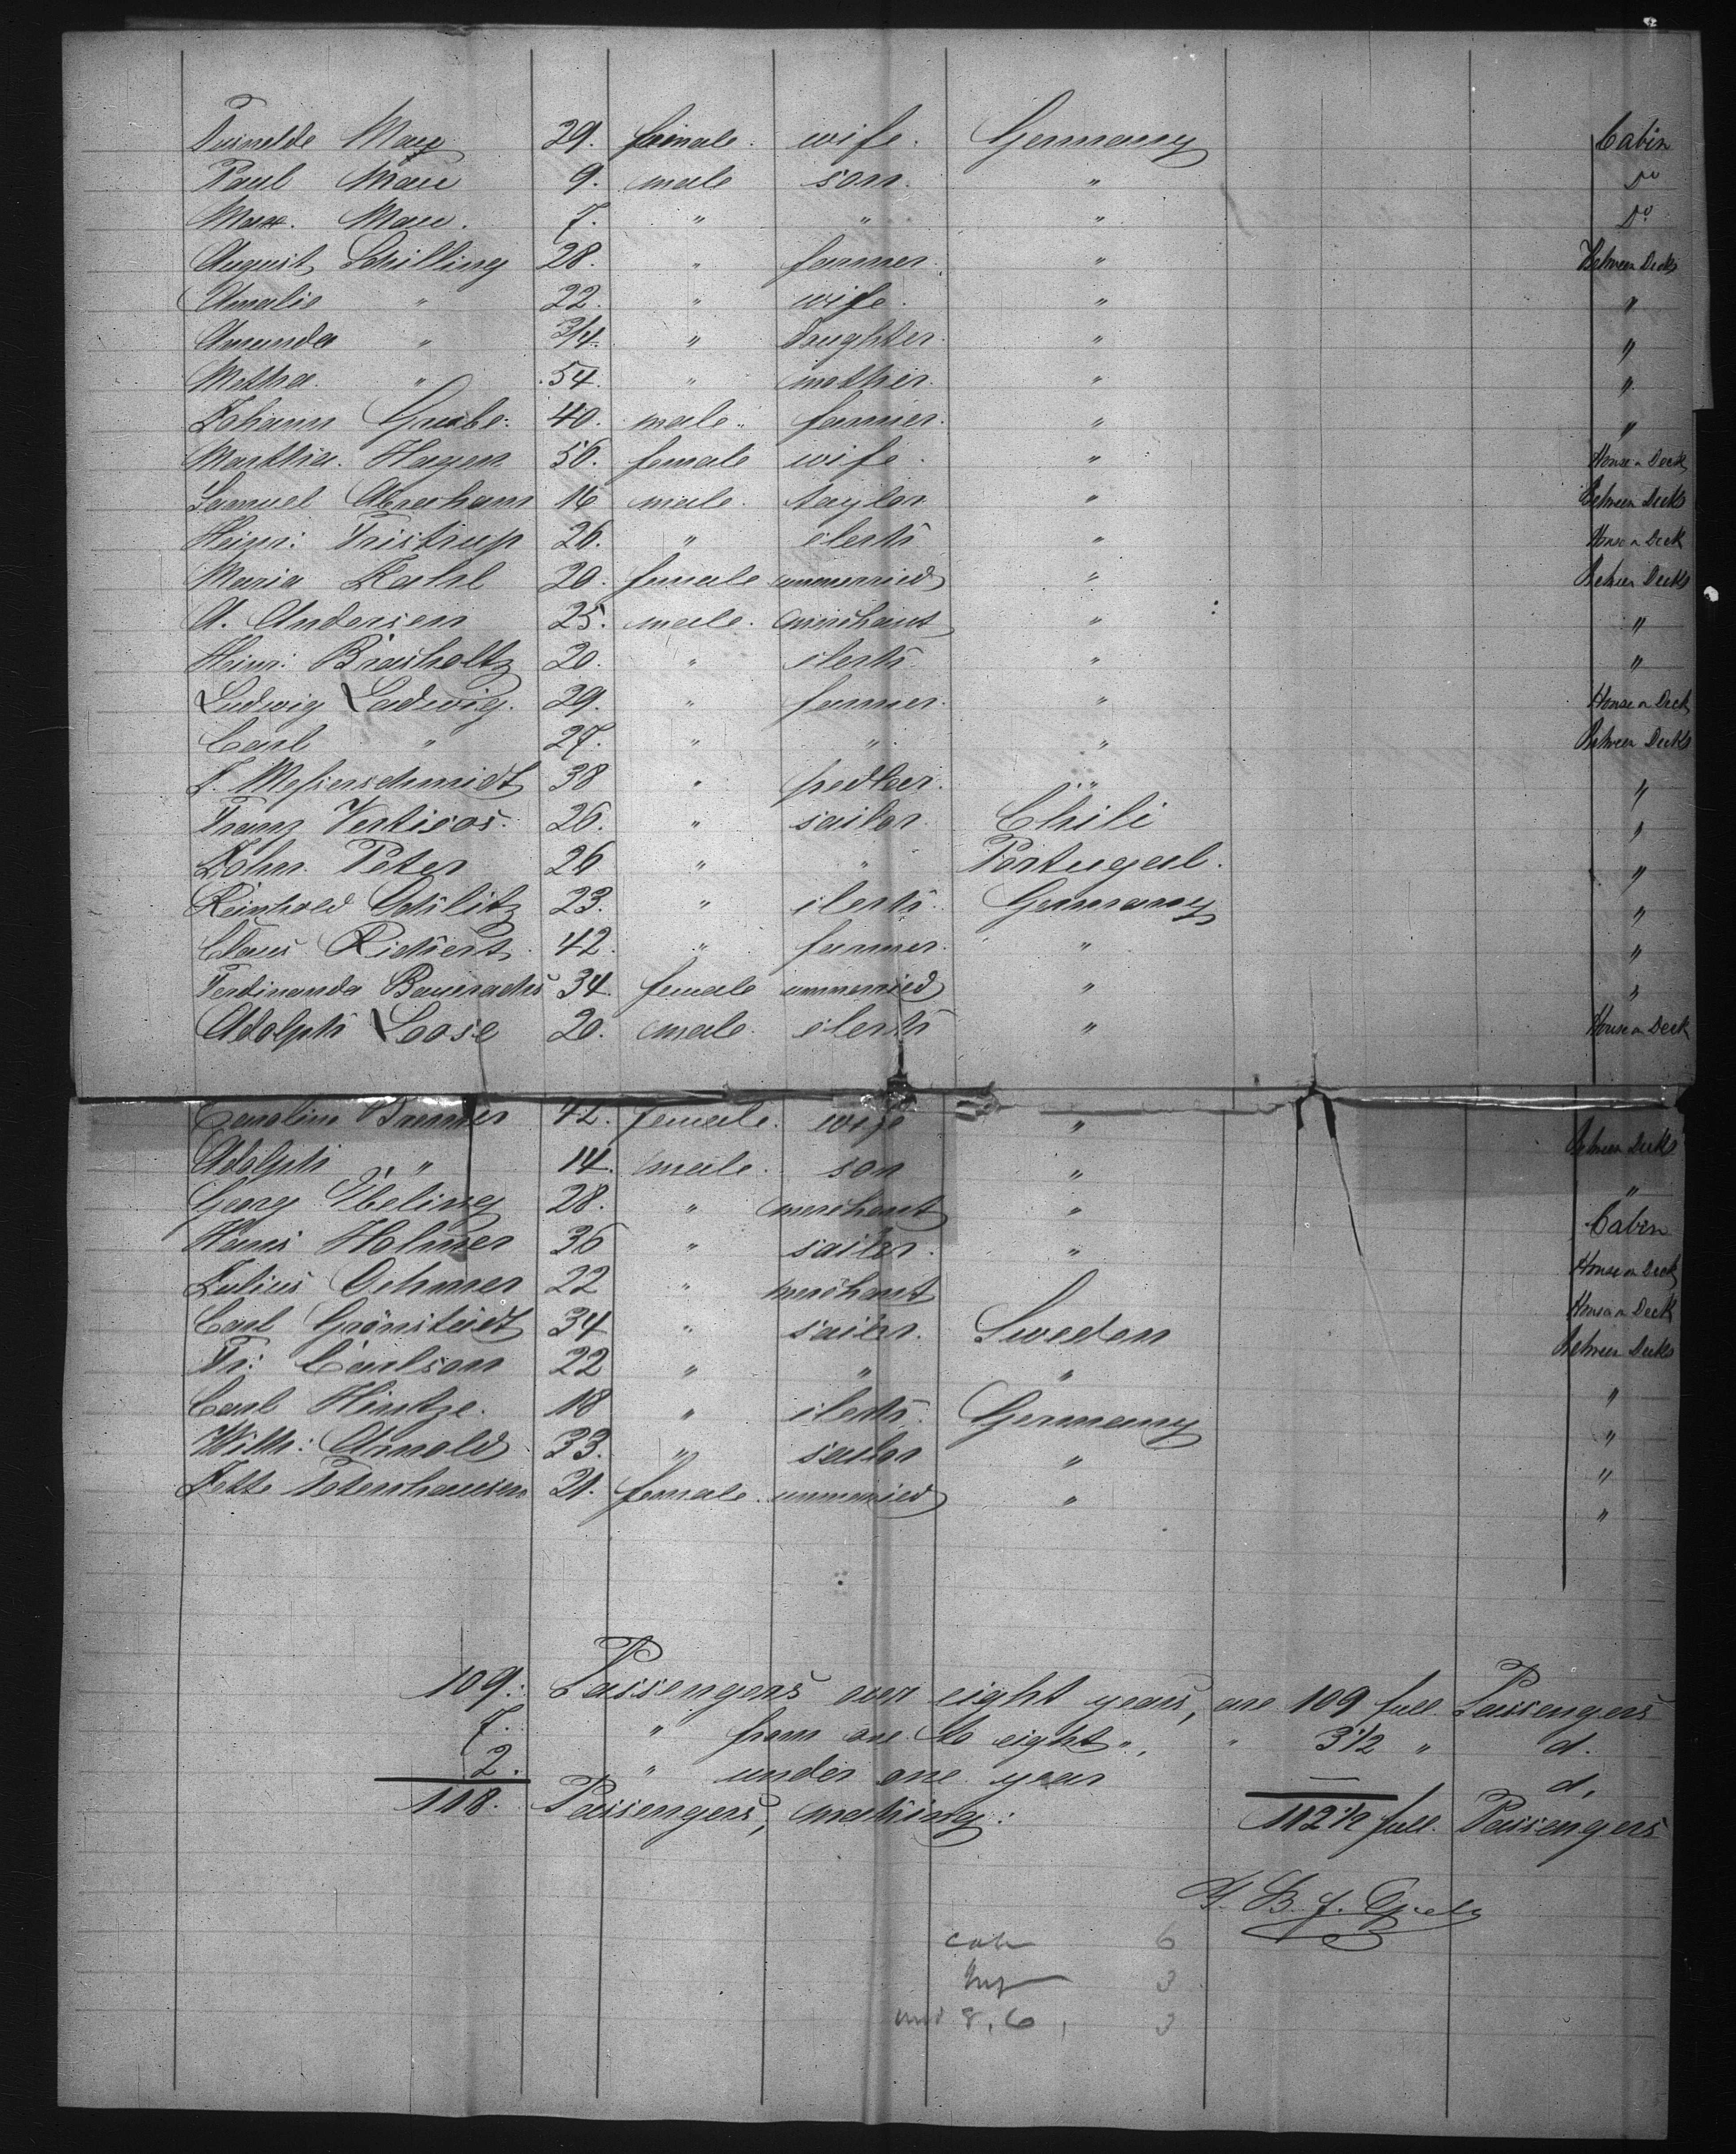 Tusnelde Mau 29. female. wife. Germany Cabin
Paul Mau 9. male son. " Do
Max. Mau. 7. " " " Do
August Schilling 28. " farmer. " Between Decks
Amalie " 22. " wife. " "
Amanda " 3/4. " daughter. " "
Metha. " 54. " mother. " "
Johann Grube. 40. male. farmer. " "
Martha. Hagen 56. female wife. " House on Deck
Samuel Abraham 16 male. taylor. " Between Decks
Heinr: Tristrup 26. " clerk " House on Deck
Maria Kahl 20. female unmarried " Between Decks
A. Andersen 25. male. merchant " "
Heinr: Brasholtz 20. " clerk. " "
Ludwig Ladwig. 29. " farmer. " House on Deck
Carl " 27. " " " Between Decks
J. Messerschmidt 38 " pedlar. " "
Franz Vertisos. 26. " sailor. Chili "
John. Peter 26 " " Portugal. "
Reinhold Goslitz 23. " clerk. Germany "
Claus Richert. 42. " farmer. " "
Ferdinanda 34. female unmarried " "
Adolph Loose 20. male. clerk " House on Deck
Caroline Bremer 42. female. wife " Between Decks
Adolph " 14. male. son " "
Georg Ebeling 28. " merchant " Cabin
Hans Holmer 36 " sailor. " House on Deck
Julius Oehmer 22 " merchant House on Deck
Carl Grönstedt 34 " sailor. Sweden Between Decks
Fr: Carlson 22 " " " "
Carl Hintze. 18 " clerk. Germany "
Wilh: Arnold 33. " sailor " "
Jette Petershausen 21. female. unmarried " "
109. Passengers over eight years, are 109 full Passengers
7. " from one to eight ", " 3 1/2 " d.
2. " under one year — d.
118. Passengers, making: 112 1/2 full. Passengers
6
3
8, 6, 3